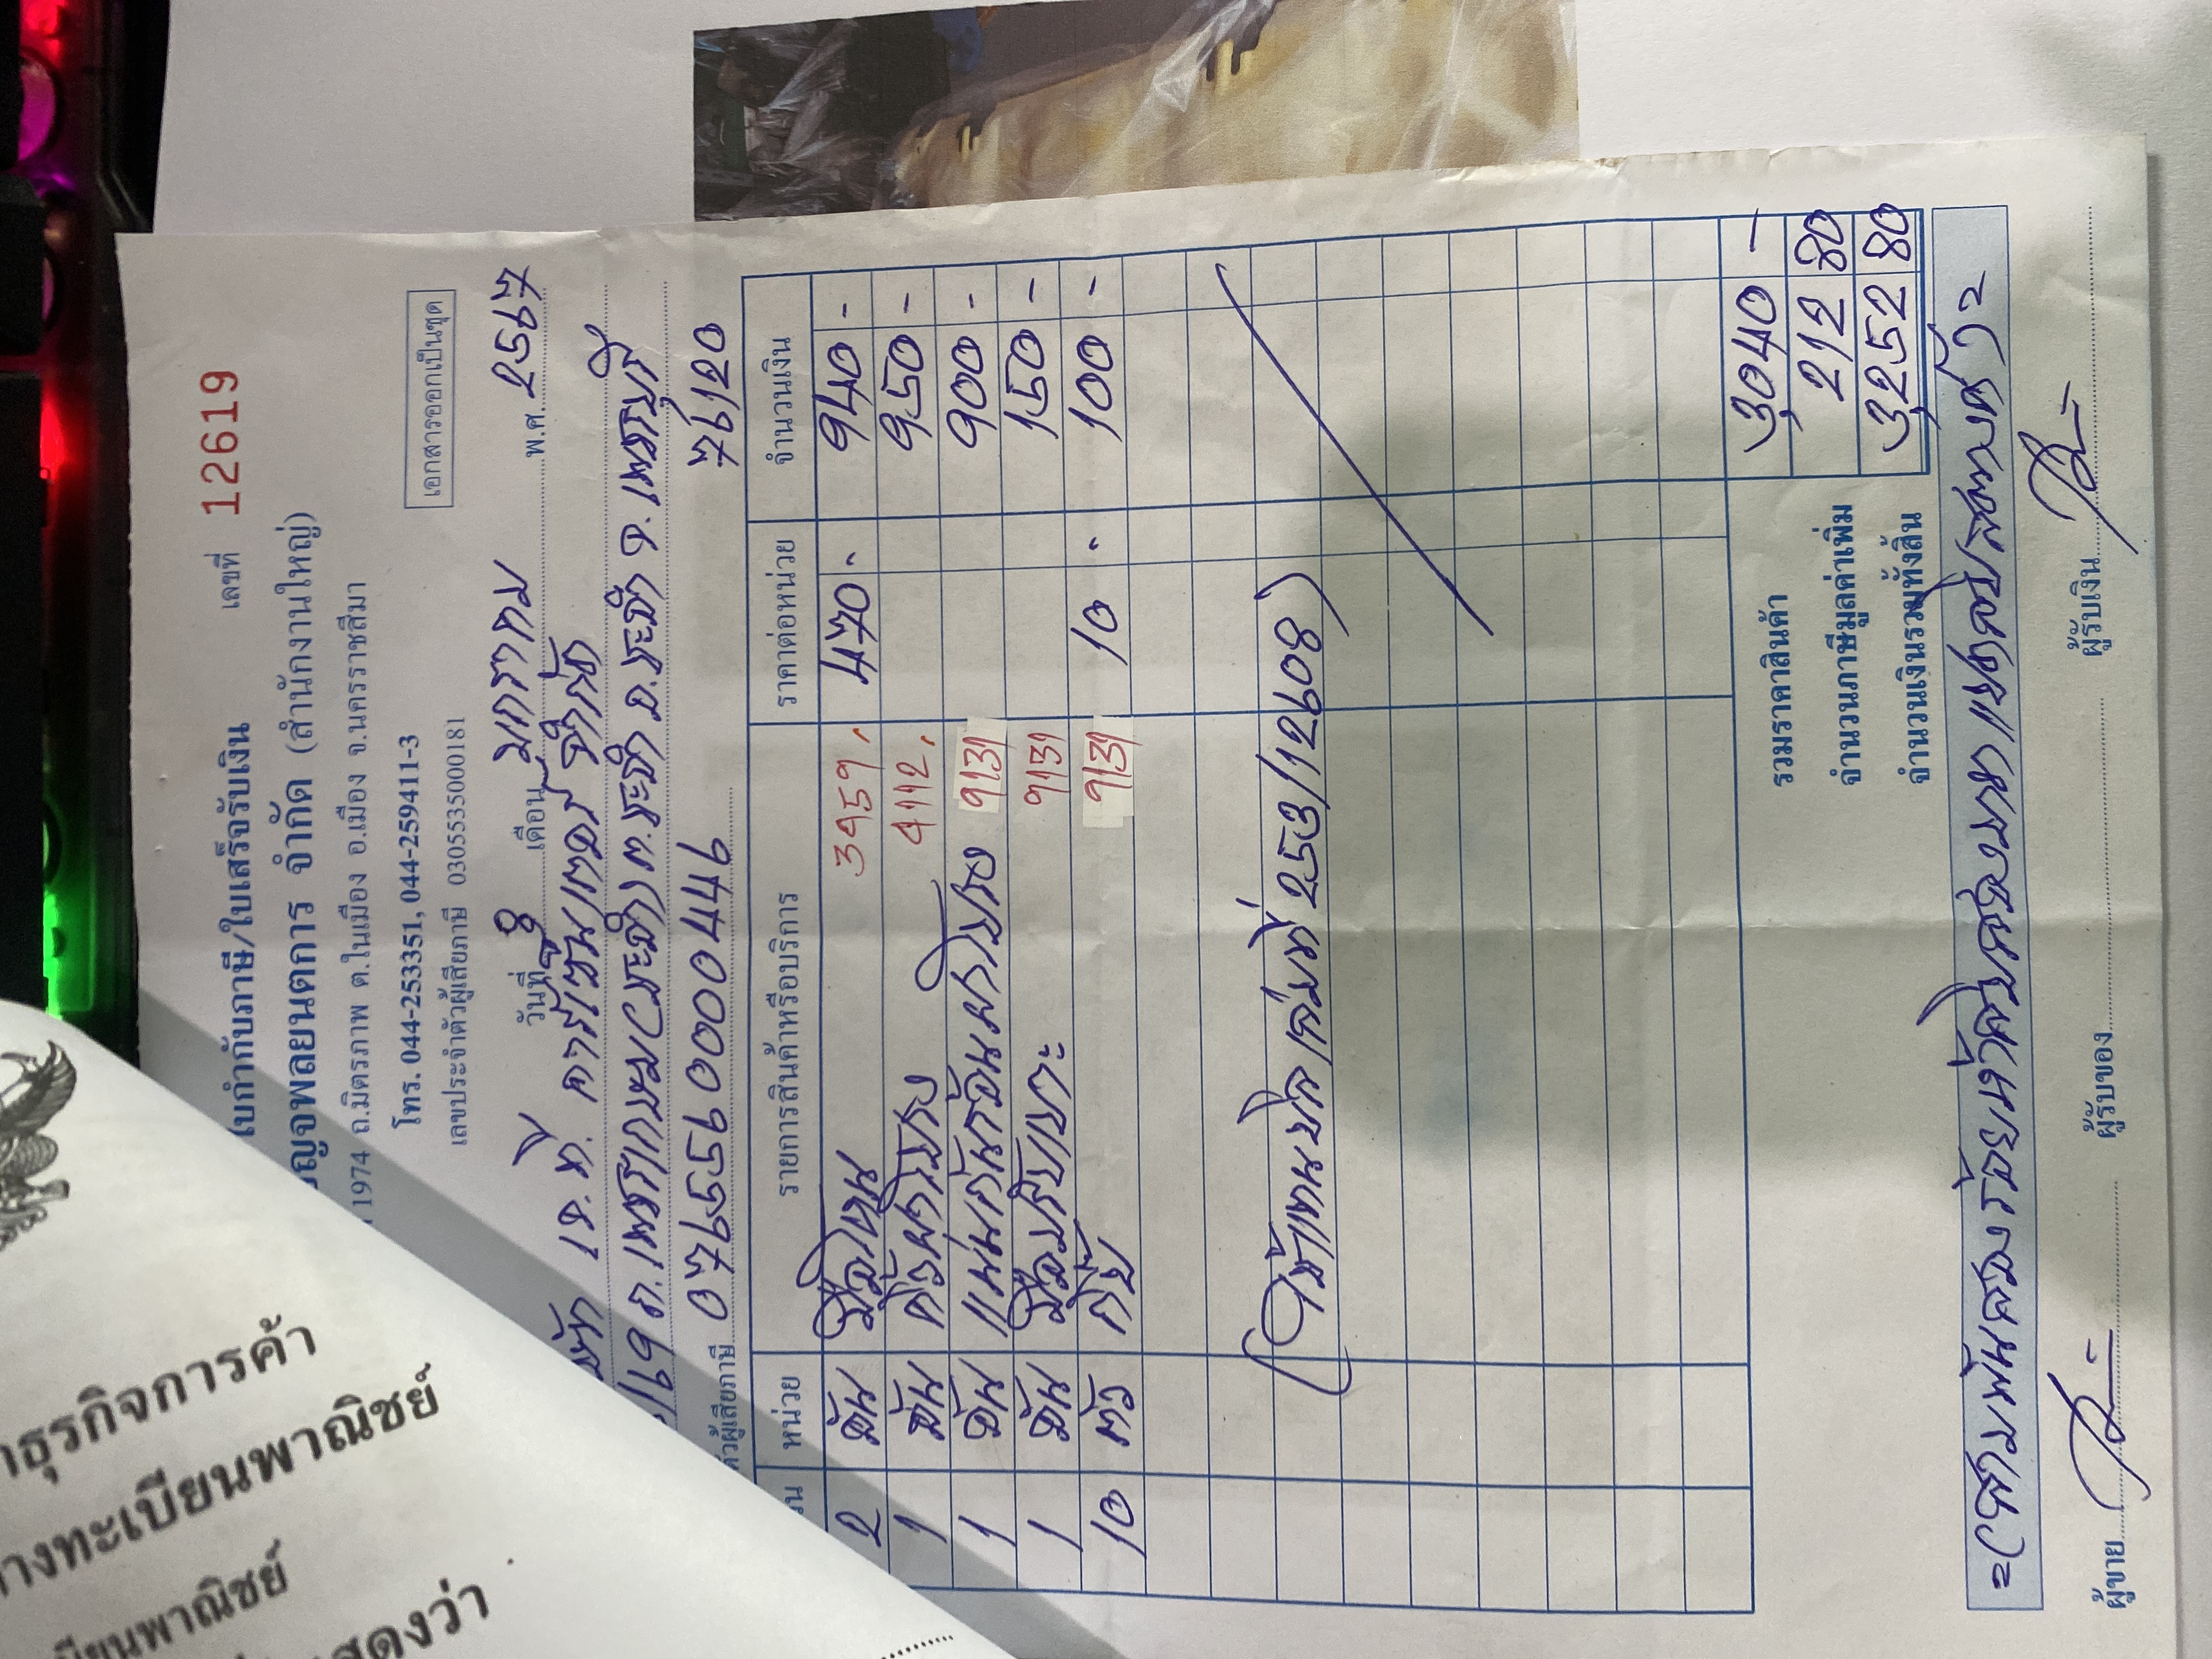 ใบกำกับภาษี/ใบเสร็จรับเงิน เลขที่ 12619
บุญจพลยนตการ จำกัด (สำนักงานใหญ่)
1974 ถ.มิตรภาพ ต.ในเมือง อ.เมือง จ.นครราชสีมา
โทร. 044-253351, 044-259411-3
เลขประจำตัวผู้เสียภาษี 0305535000181
เอกสารออกเป็นชุด
วันที่ 3 เดือน มกราคม พ.ศ. 2567
เอ.ที. คาร์เซนเตอร์ จำกัด
ต.ระจิต อ.ระจิต จ.เพชรบุรี
ตัวผู้เสียภาษี 0765590000449 76120
หน่วย รายการสินค้าหรือบริการ ราคาต่อหน่วย จำนวนเงิน
2 อัน มือโหน 3959 470 - 940 -
1 อัน คิ้วฝากระโปรง 4112 950 -
1 อัน แผ่นกันร้อนฝากระโปรง 9131 900 -
1 อัน มือปรับเบาะ 9131 150 -
10 ตัว กิ๊บ 9131 10 - 100 -
(ใช้แทนบิล เล่มที่ 253/12608)
รวมราคาสินค้า 3040 -
จำนวนภาษีมูลค่าเพิ่ม 212 80
จำนวนเงินรวมทั้งสิ้น 3252 80
=(สามพันสองร้อยห้าสิบสองบาทแปดสิบสตางค์)=
ผู้ขาย ผู้รับของ ผู้รับเงิน
ธุรกิจการค้า
างทะเบียนพาณิชย์
เบียนพาณิชย์
แสดงว่า